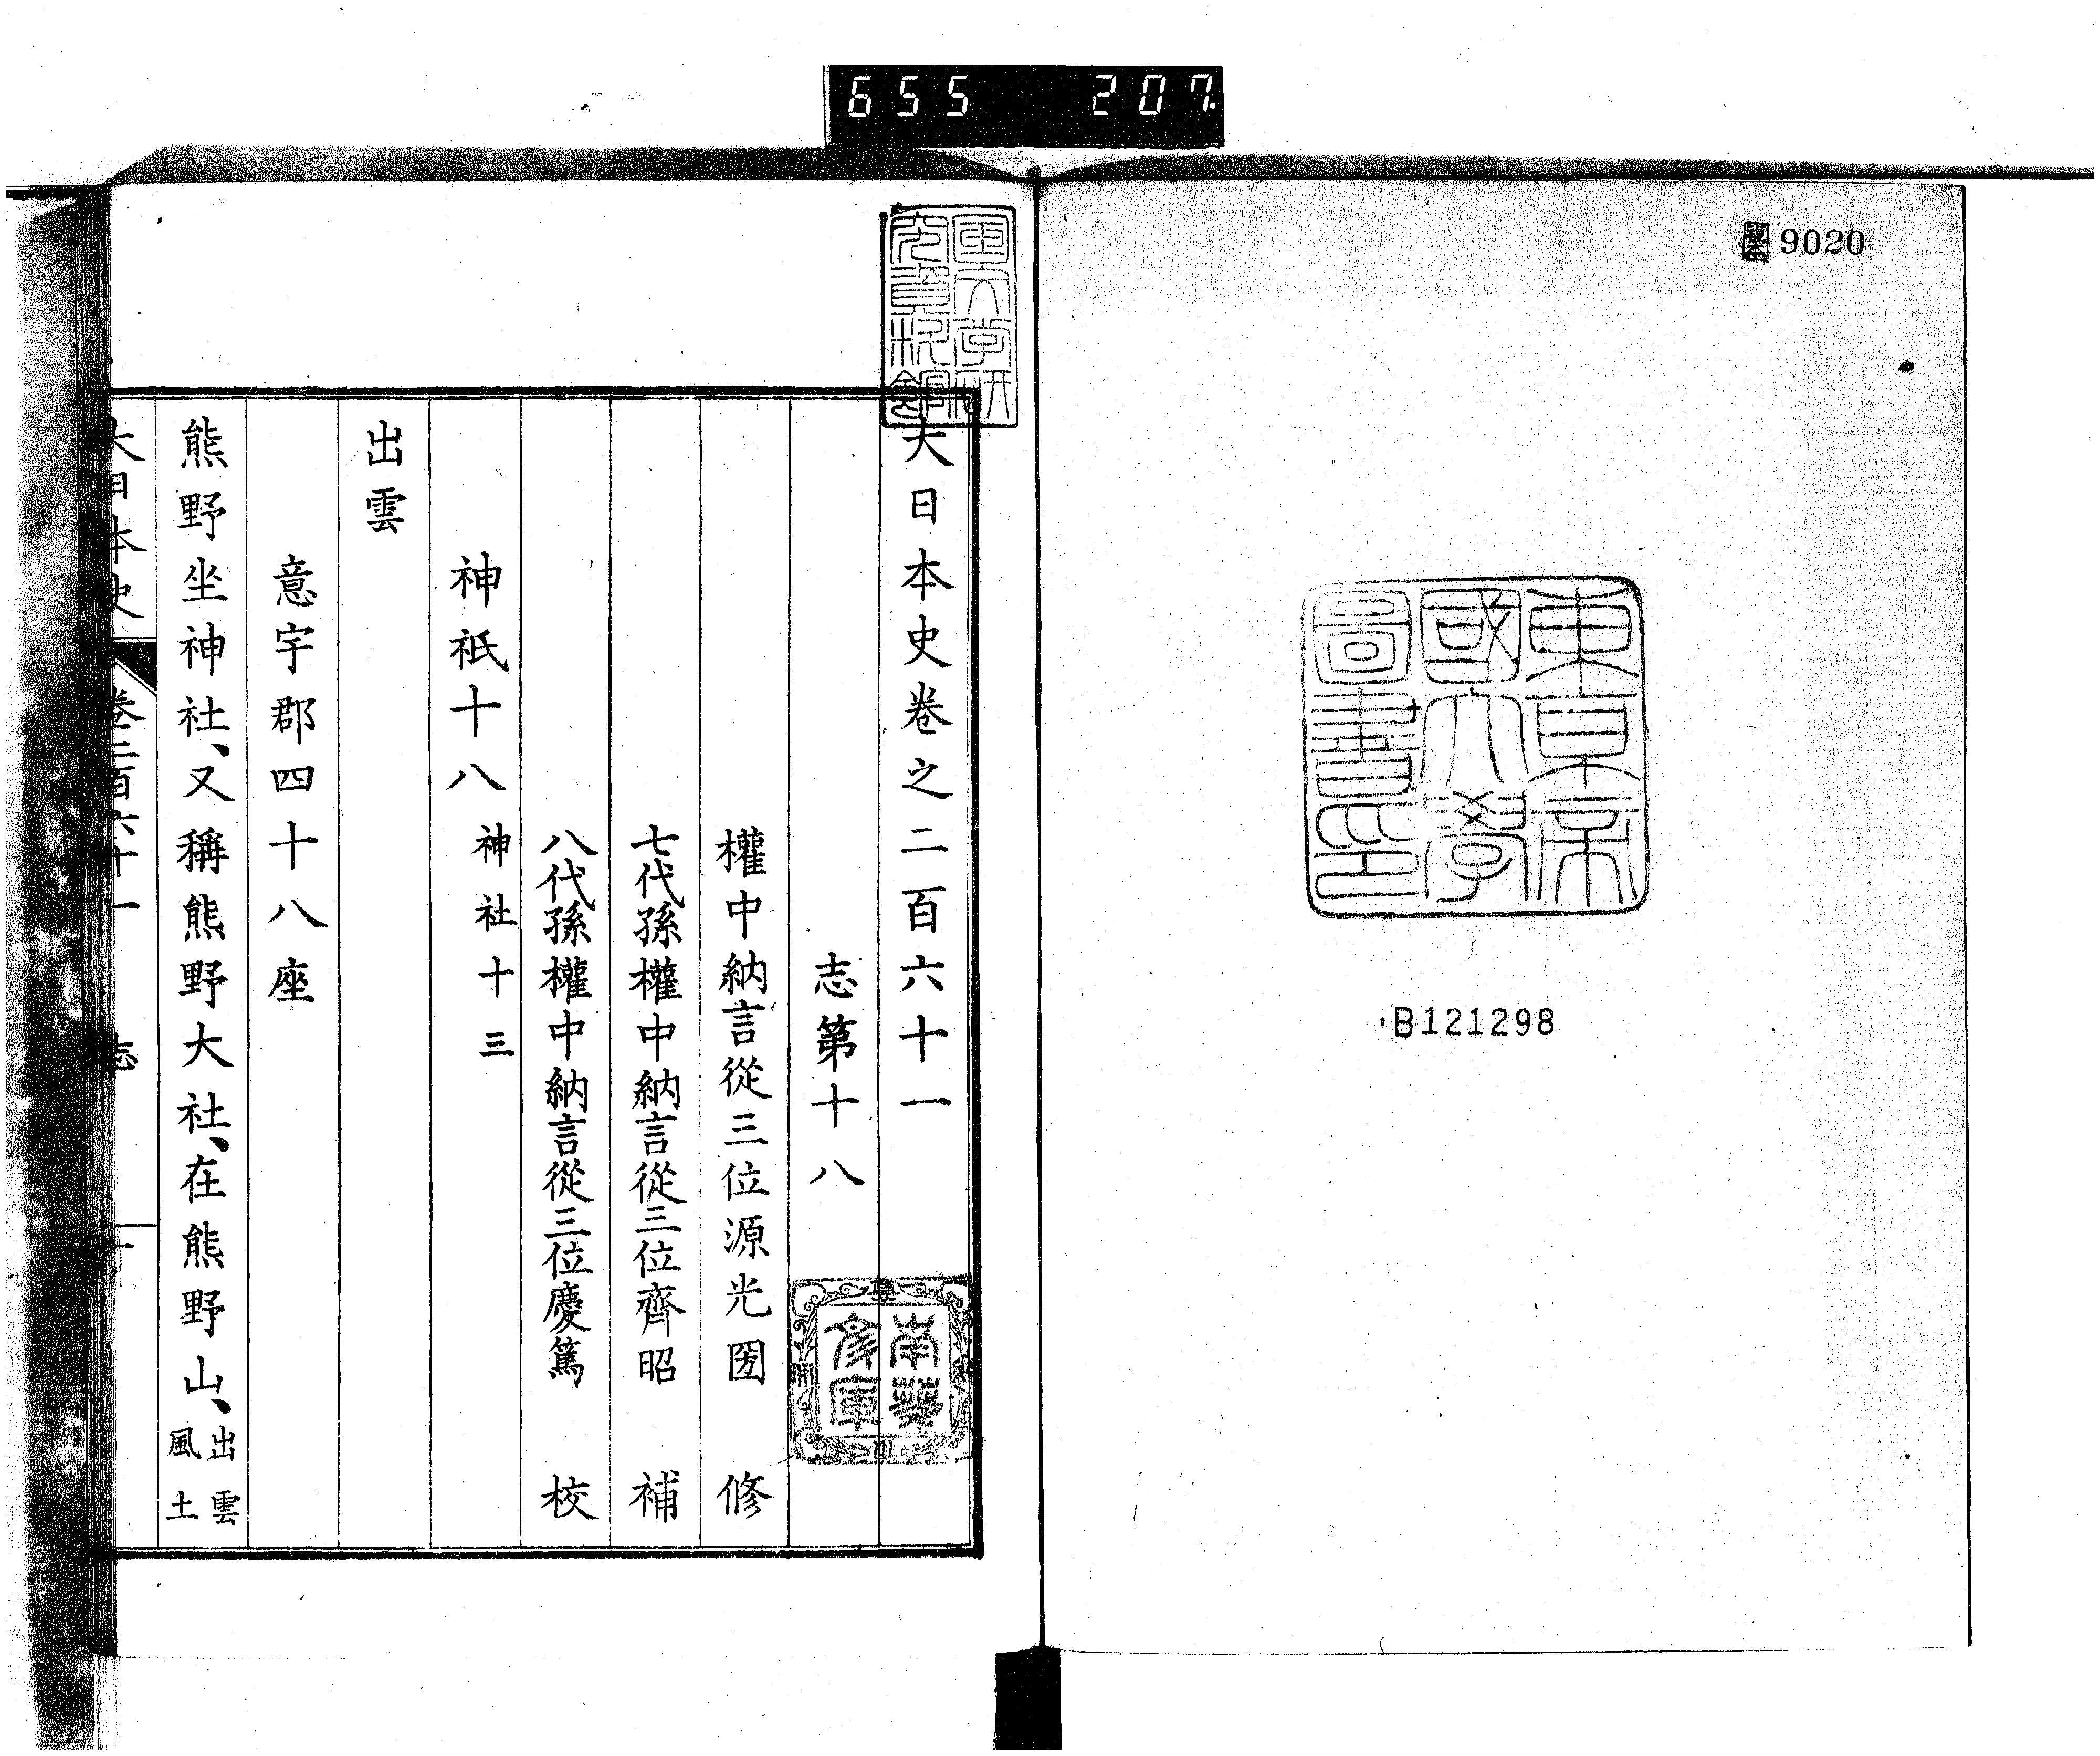 655 207.
複本 9020
東京帝
國大學
圖書印
B121298
國文學研
究資料館
大日本史卷之二百六十一
志第十八
南葵
文庫
權中納言從三位源光圀 修
七代孫權中納言從三位齊昭 補
八代孫權中納言從三位慶篤 校
神祇十八 神社十三
出雲
意宇郡四十八座
熊野坐神社、又稱熊野大社、在熊野山、出雲
風土
大日本史 卷二百六十一 志 一